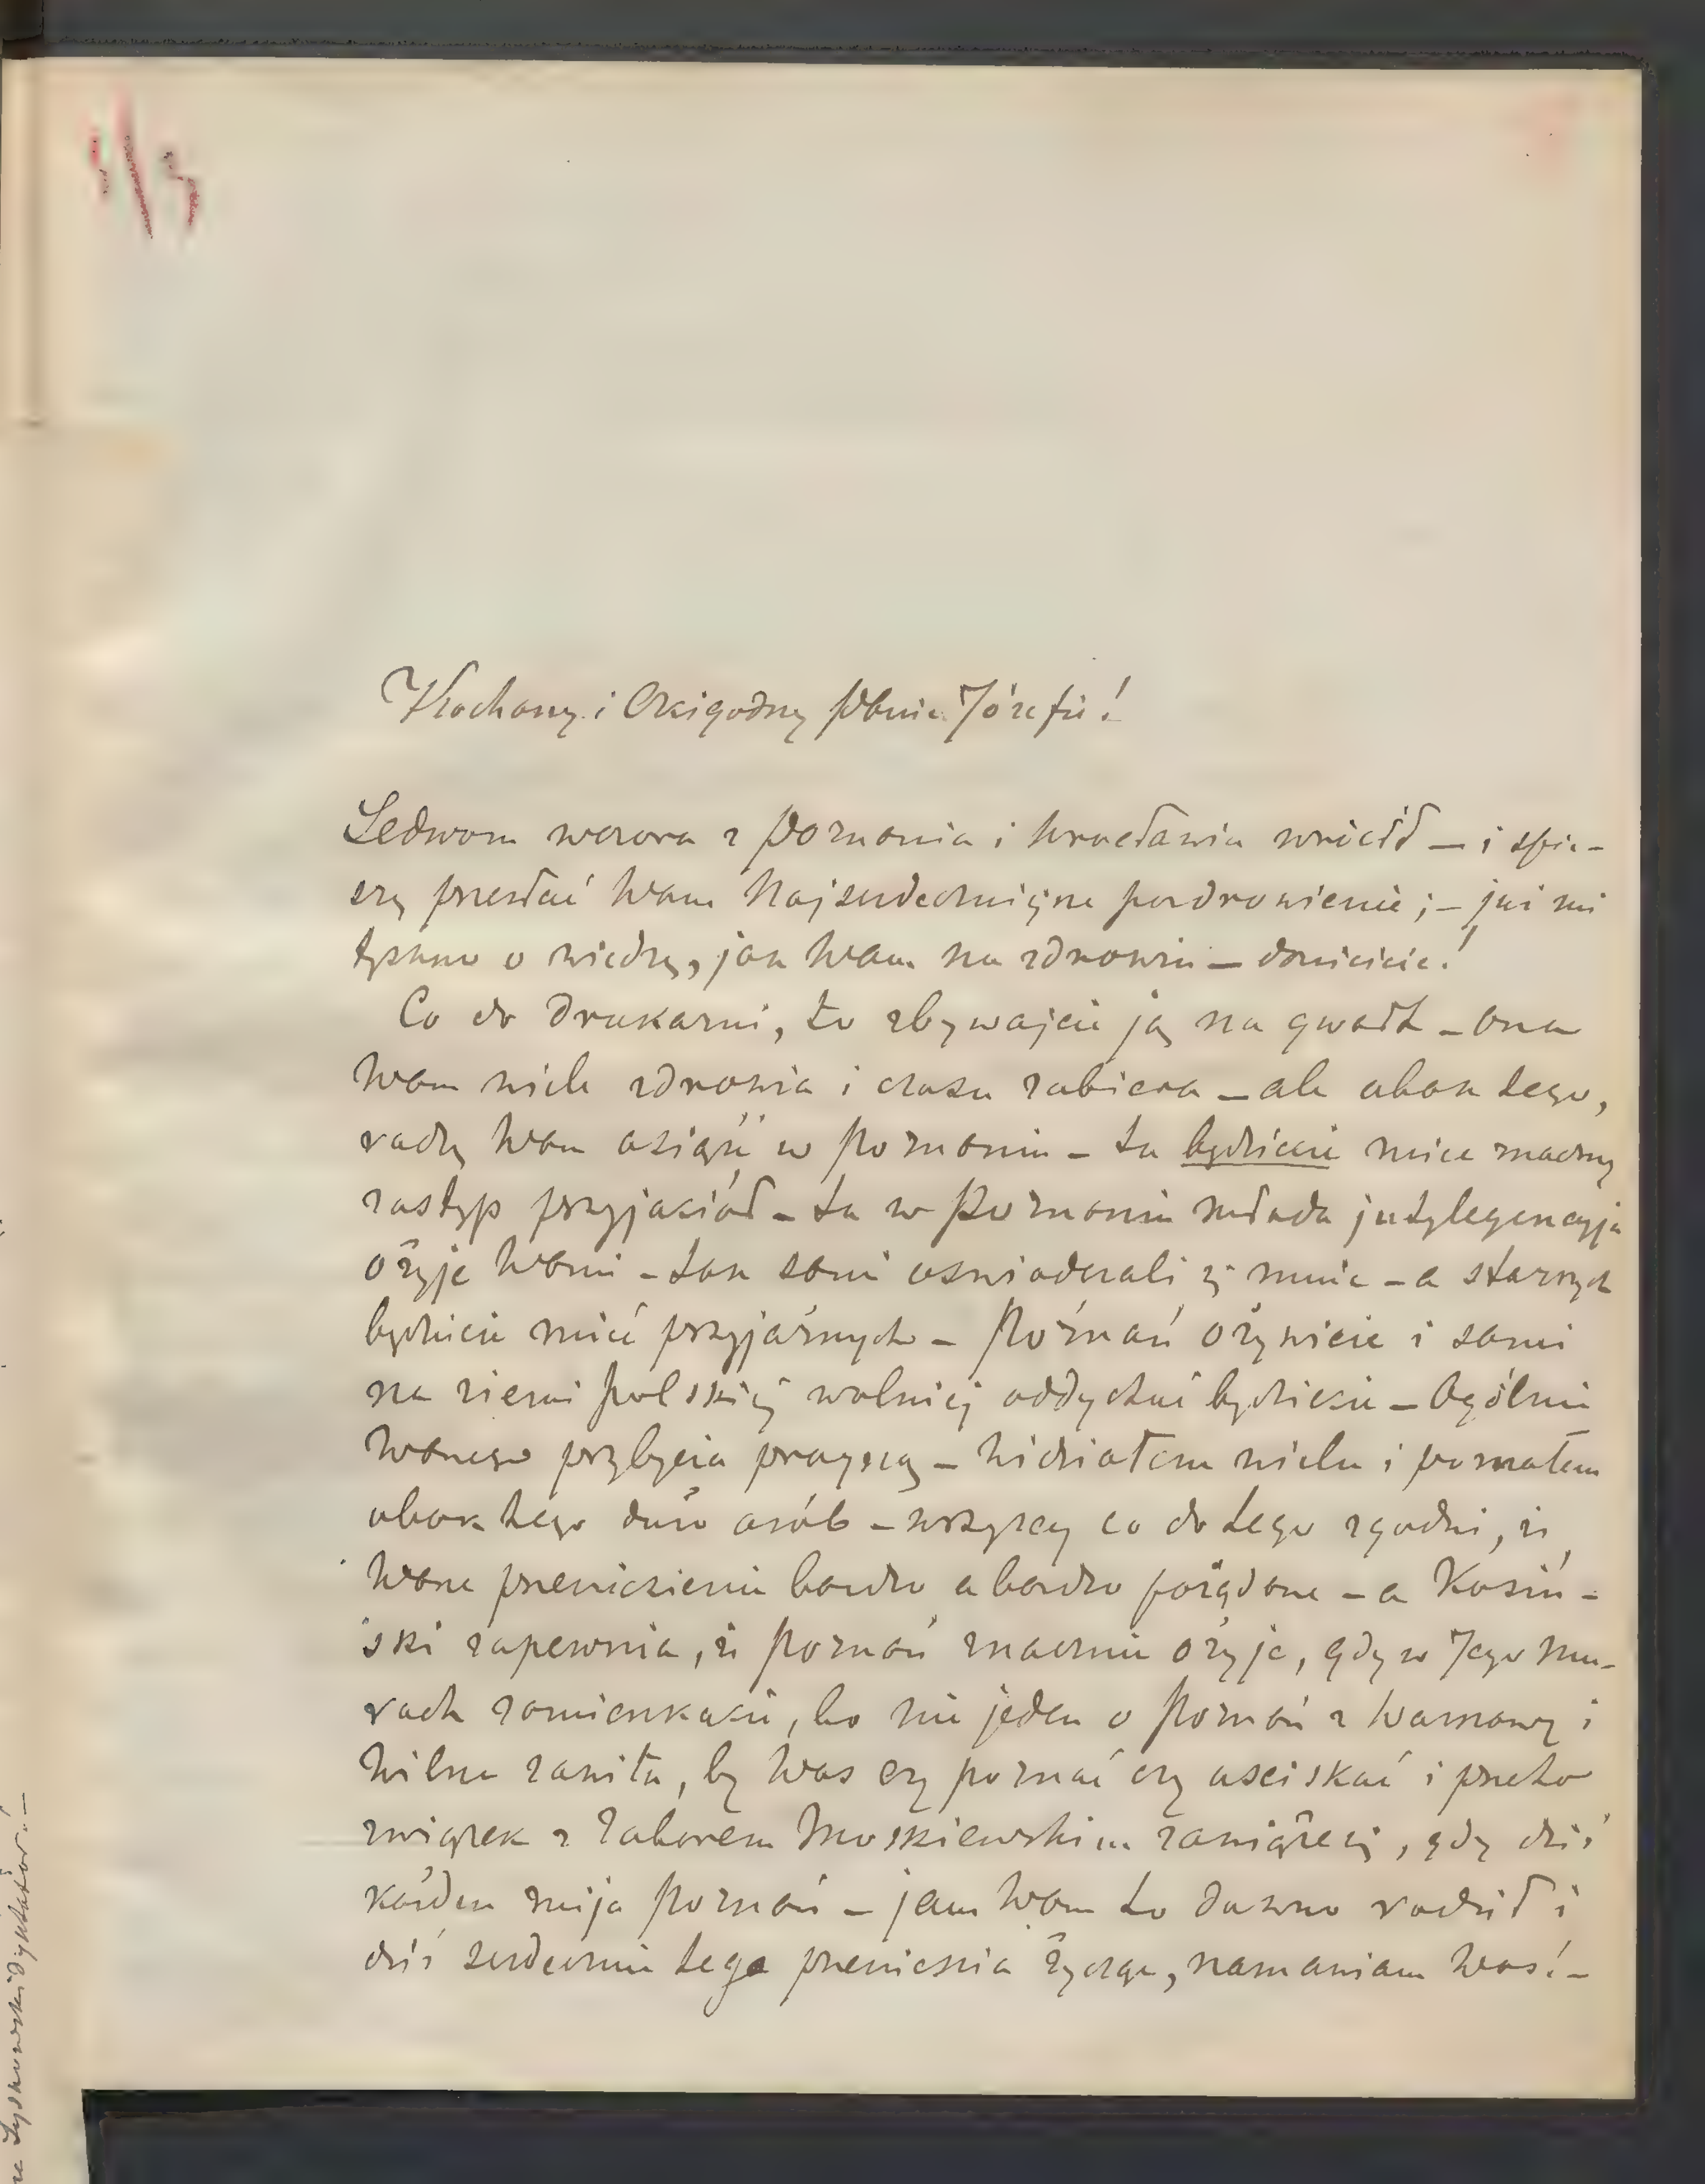 Kochany i Czcigodny Panie Józefie!
Ledwom wczora z Poznania i Wrocławia wrócił – i spie-
szę przesłać Wam Najserdeczniejsze pozdrowienie; – już mi
tęskno o wiedzę, jak Wam na zdrowiu – donieście!
Co do Drukarni, to zbywajcie ją na gwałt – ona
Wam wiele zdrowia i czasu zabiera – ale obok tego,
radzę Wam osiąść w Poznaniu – tu będziecie mieć znaczny
zastęp przyjaciół – tu w Poznaniu młoda intylegencyja
ożyje Wami – tak sami oświadczali się mnie – a starszych
będziecie mieć przyjaźnych – Poznań ożywicie i sami
na ziemi polskiej wolniej oddychać będziecie – Ogólnie
Waszego przybycia pragną – Widziałem wielu i poznałem
obok tego dużo osób – wszyscy co do tego zgodni, iż
Wasze przeniesienie bardzo a bardzo pożądane – a Kosiń-
ski zapewnia, iż Poznań znacznie ożyje, gdy w Jego mu-
rach zamieszkacie, bo nie jeden o Poznań z Warszawy i
Wilna zawita, by Was czy poznać czy uściskać i przeto
związek z Zaborem Moskiewskim zawiąże się, gdy dziś
każden mija Poznań – jam Wam to dawno radził i
dziś serdecznie tego przeniesienia życzę, namawiam Was! –
Łyskowski dyktator –